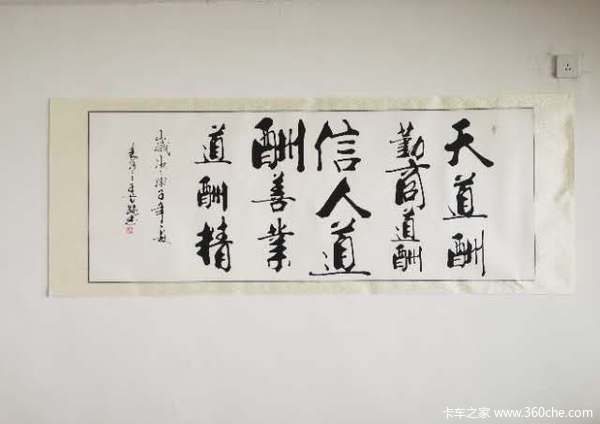 天道酬
勤商道酬
信人道
酬善業
道酬精
卡车之家 www.360che.com